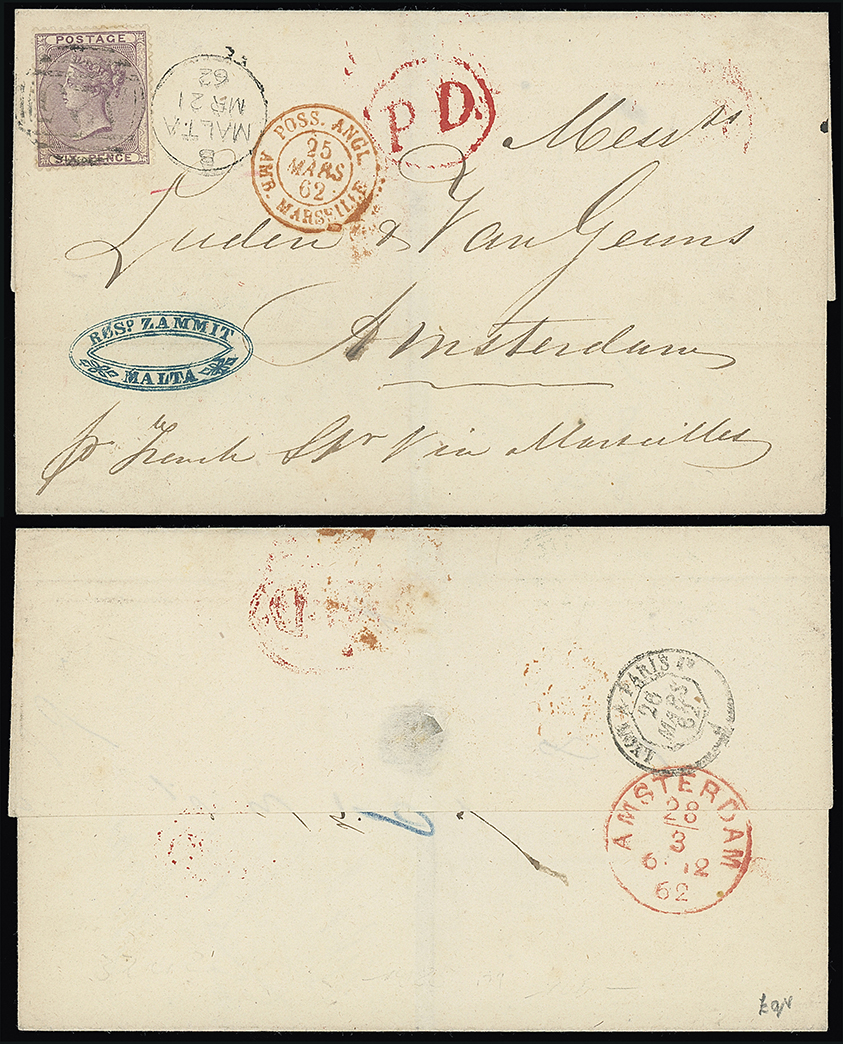 POSTAGE
SIX PENCE
B
MALTA
MR 21
62
POSS. ANGL.
25
MARS
62
AMB. MARSEILLE
P.D.
Messrs
Luden & Van Geuns
Amsterdam
RØSº ZAMMIT
MALTA
pr French Str Via Marseilles
LYON A PARIS
26
MARS
62
AMSTERDAM
28
3
6 - 12
62